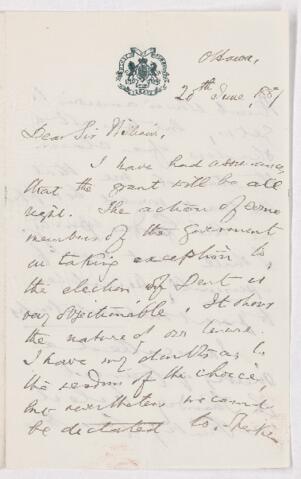 Ottawa,
20th June, 1881
Dear Sir William,
I have had assurance
that the grant will be all
right. The action of some
members of the Government
in taking exception to
the election of Dent is
very objectionable. It shows
the nature of our tenure.
I have my doubts as to
the wisdom of the choice,
but nevertheless we cannot
be dictated to.